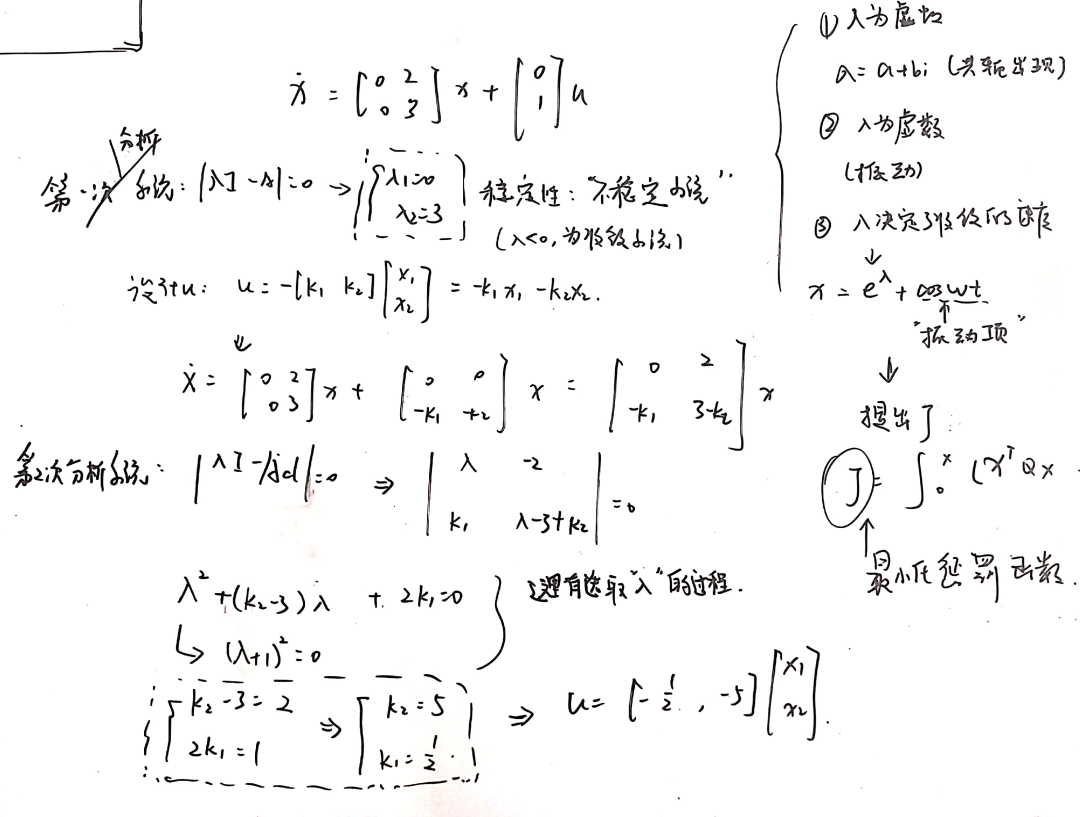 ẋ = [0 2; 0 3] x + [0; 1] u
分析
第一次系统: |λI - A| = 0 → {λ₁=0, λ₂=3} 稳定性: "不稳定系统"
(λ<0, 为收敛系统)
设计u: u = -[k₁ k₂][x₁; x₂] = -k₁x₁ - k₂x₂.
↓
ẋ = [0 2; 0 3] x + [0 0; -k₁ +2] x = [0 2; -k₁ 3-k₂] x
第2次分析系统: |λI - Acl| = 0 ⇒ |λ -2; k₁ λ-3+k₂| = 0
λ² + (k₂-3)λ + 2k₁ = 0
↳ (λ+1)² = 0
这里有选取"λ"的过程.
{k₂-3=2, 2k₁=1} ⇒ {k₂=5, k₁=1/2.} ⇒ u = [-1/2, -5][x₁; x₂].
① λ为虚数
λ = a+bi (共轭出现)
② λ为虚数
(振动)
③ λ决定了收敛的速度
↓
x = e^λ + cos wt
↑
"振动项"
↓
提出了
J = ∫₀^x (x^T Q x
↑
最小化惩罚函数.